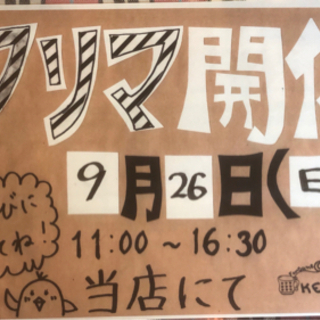 フリマ開催
9月26日(日
びに
てね!
11:00~16:30
当店にて
KE